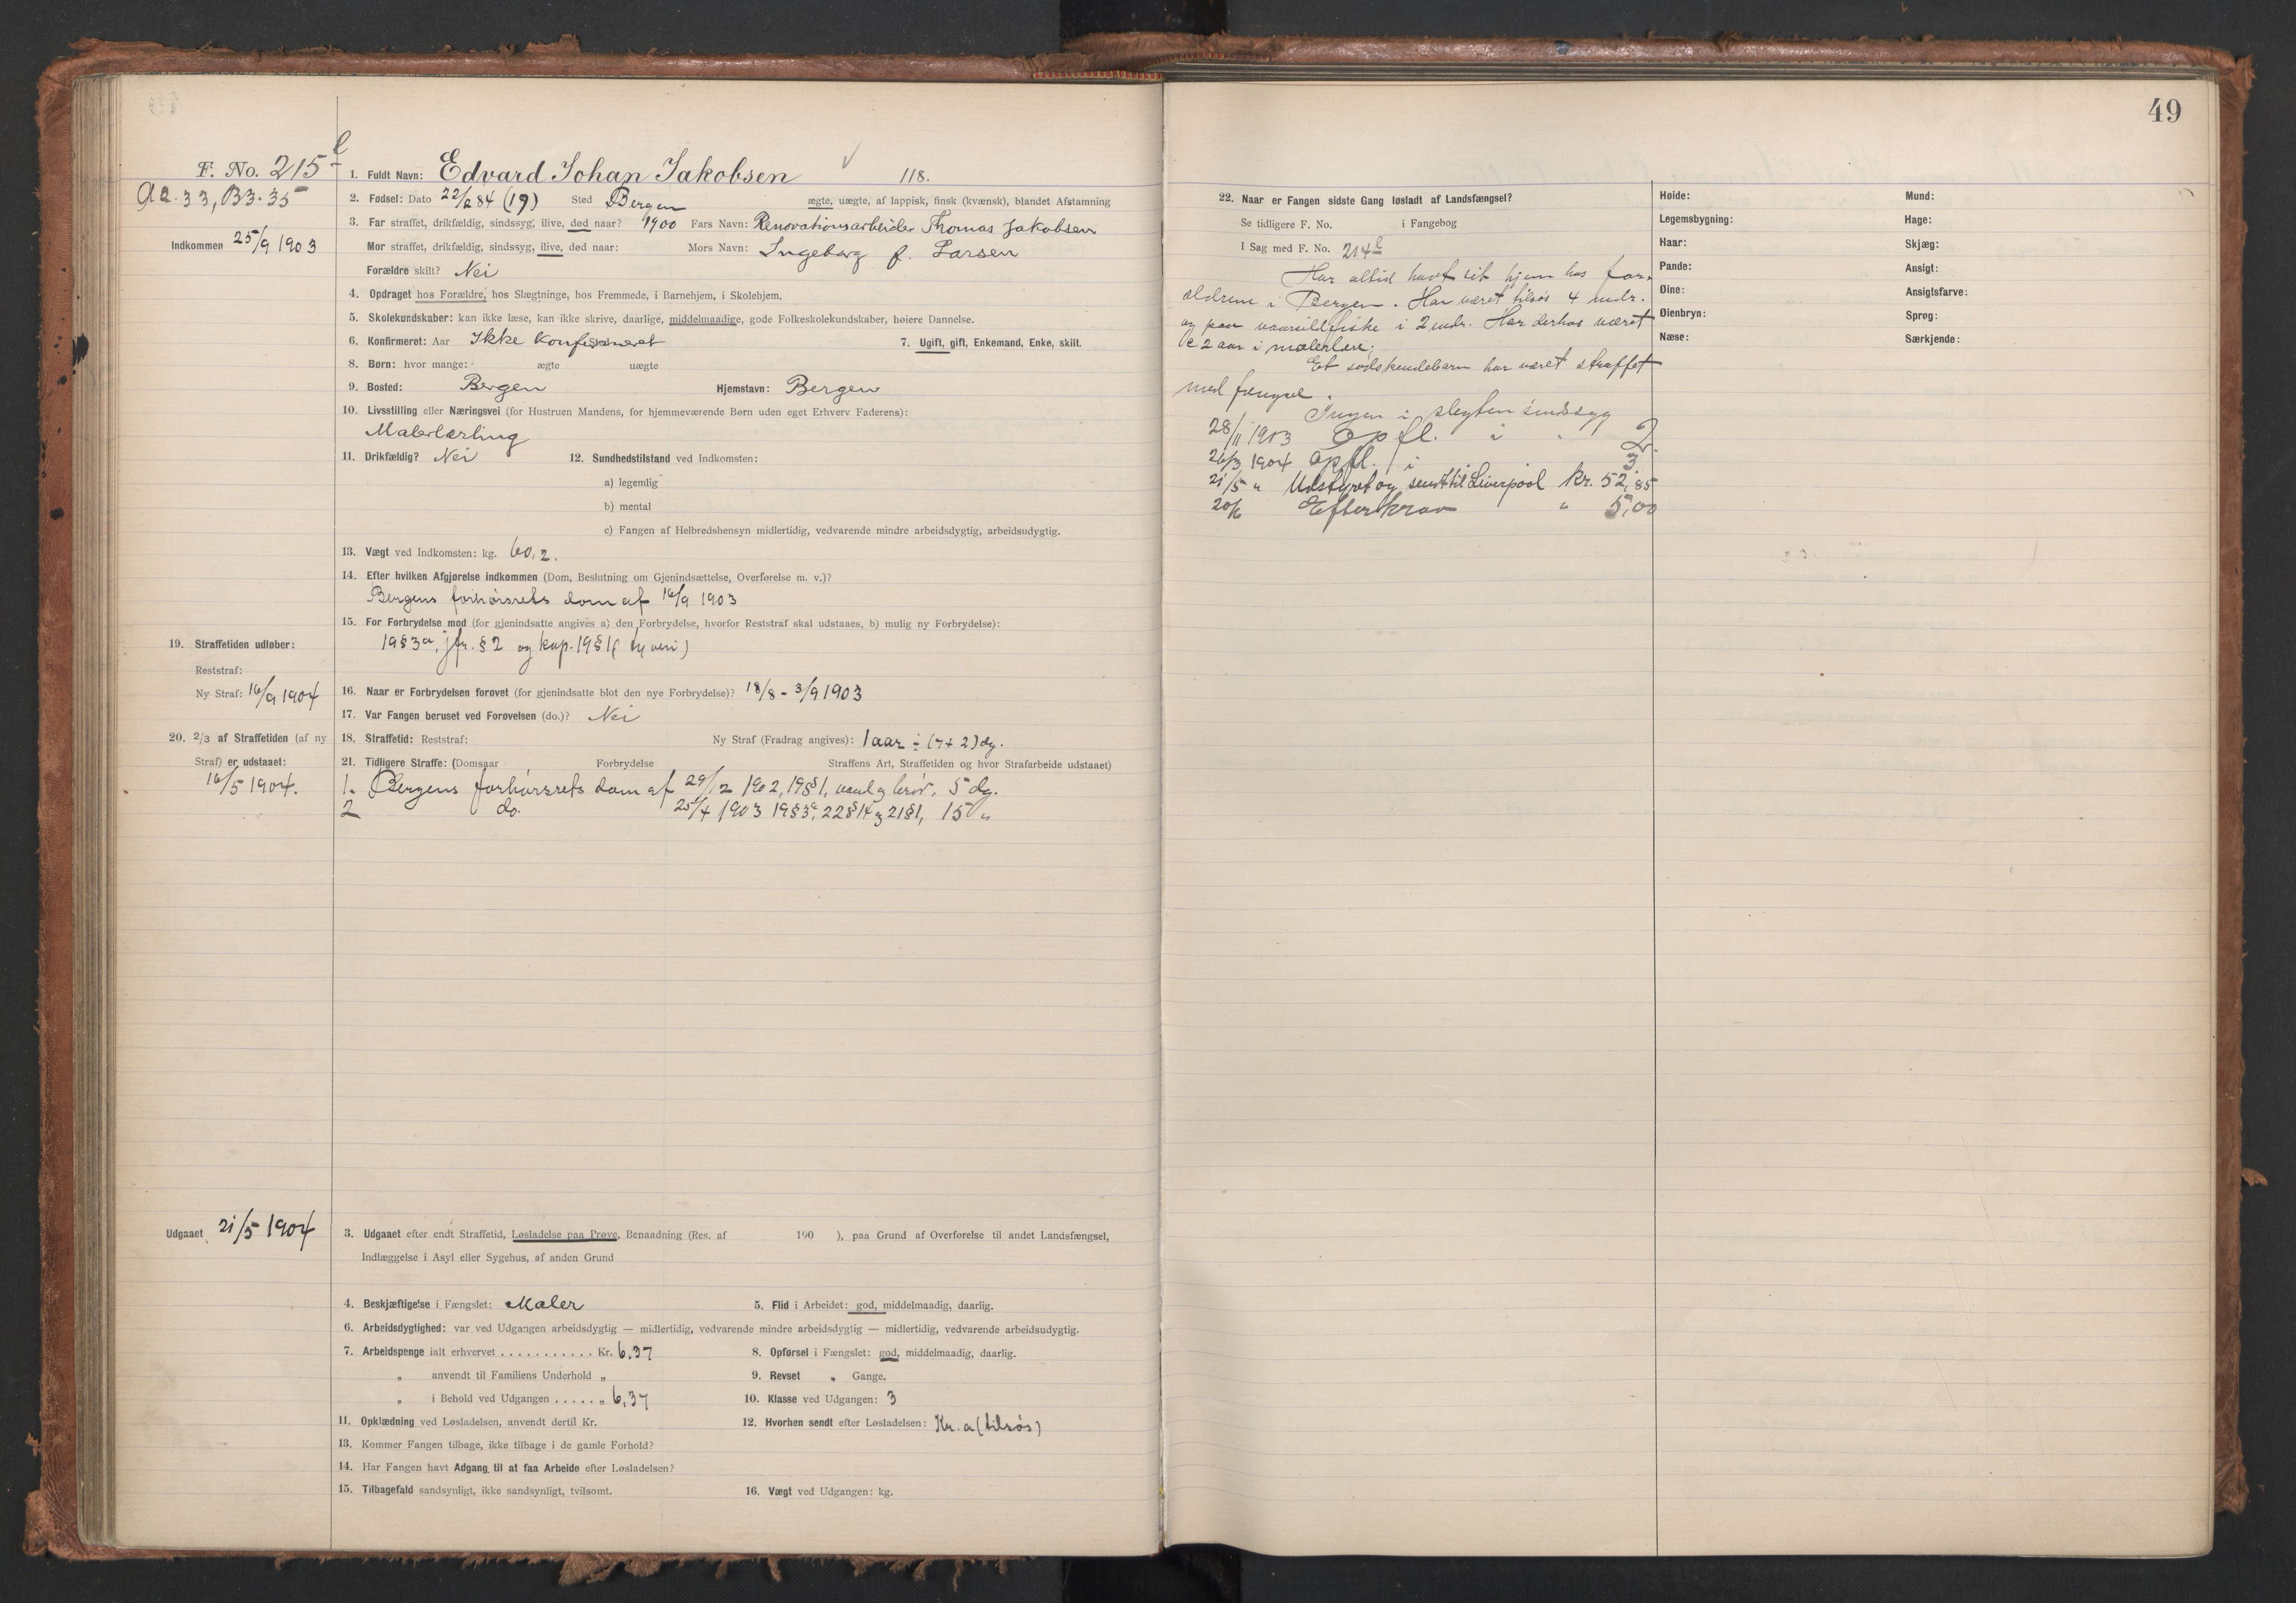 F. No. 215 ł
Aa. 33, B3. 35
Indkommen 25/9 1903
1. Fuldt Navn: Edvard Johan Jakobsen 118.
2. Fødsel: Dato 22/2 84 (19) Sted Bergen ægte, uægte, af lappisk, finsk (kvænsk), blandet Afstamning
3. Far straffet, drikfældig, sindssyg, ilive, død naar? 1900 Fars Navn: Renovationsarbeider Thomas Jakobsen
Mor straffet, drikfældig, sindssyg, ilive, død naar: Mors Navn: Ingeborg f. Larsen
Forældre skilt? Nei
4. Opdraget hos Forældre, hos Slægtninge, hos Fremmede, i Barnehjem, i Skolehjem.
5. Skolekundskaber: kan ikke læse, kan ikke skrive, daarlige, middelmaadige, gode Folkeskolekundskaber, høiere Dannelse.
6. Konfirmeret: Aar Ikke konfirmeret 7. Ugift, gift, Enkemand, Enke, skilt.
8. Børn: hvor mange: ægte uægte
9. Bosted: Bergen Hjemstavn: Bergen
10. Livsstilling eller Næringsvei (for Hustruen Mandens, for hjemmeværende Børn uden eget Erhverv Faderens):
Malerlærling
11. Drikfældig? Nei 12. Sundhedstilstand ved Indkomsten:
a) legemlig
b) mental
c) Fangen af Helbredshensyn midlertidig, vedvarende mindre arbeidsdygtig, arbeidsudygtig.
13. Vægt ved Indkomsten: kg. 60,2.
14. Efter hvilken Afgjørelse indkommen (Dom, Beslutning om Gjenindsættelse, Overførelse m. v.)?
Bergens forhørsrets dom af 16/9 1903
15. For Forbrydelse mod (for gjenindsatte angives a) den Forbrydelse, hvorfor Reststraf skal udstaaes, b) mulig ny Forbrydelse):
19 § 3 a, jfr. § 2 og kap. 19 § 1 (tyveri)
19. Straffetiden udløber:
Reststraf:
Ny Straf: 16/9 1904
16. Naar er Forbrydelsen forøvet (for gjenindsatte blot den nye Forbrydelse)? 18/8 - 3/9 1903
17. Var Fangen beruset ved Forøvelsen (do.)? Nei
20. 2/3 af Straffetiden (af ny
Straf) er udstaaet:
16/5 1904.
18. Straffetid: Reststraf: Ny Straf (Fradrag angives): 1 aar ÷ (7+2) dg.
21. Tidligere Straffe: (Domsaar Forbrydelse Straffens Art, Straffetiden og hvor Strafarbeide udstaaet)
1. Bergens forhørsrets dom af 29/12 1902, 19 § 1, vand og brød, 5 dg.
2 do. 25/4 1903 19 § 3 a, 22 § 14 og 21 § 1, 15 "
Udgaaet 21/5 1904
3. Udgaaet efter endt Straffetid, Løsladelse paa Prøve, Benaadning (Res. af 190 ), paa Grund af Overførelse til andet Landsfængsel,
Indlæggelse i Asyl eller Sygehus, af anden Grund
4. Beskjæftigelse i Fængslet: Maler 5. Flid i Arbeidet: god, middelmaadig, daarlig.
6. Arbeidsdygtighed: var ved Udgangen arbeidsdygtig — midlertidig, vedvarende mindre arbeidsdygtig — midlertidig, vedvarende arbeidsudygtig.
7. Arbeidspenge ialt erhvervet . . . . . . . . . . . Kr. 6,37 8. Opførsel i Fængslet: god, middelmaadig, daarlig.
„ anvendt til Familiens Underhold „ 9. Revset „ Gange.
„ i Behold ved Udgangen . . . . . „ 6,37 10. Klasse ved Udgangen: 3
11. Opklædning ved Løsladelsen, anvendt dertil Kr. 12. Hvorhen sendt efter Løsladelsen: Kr.a (tilsøs)
13. Kommer Fangen tilbage, ikke tilbage i de gamle Forhold?
14. Har Fangen havt Adgang til at faa Arbeide efter Løsladelsen?
15. Tilbagefald sandsynligt, ikke sandsynligt, tvilsomt. 16. Vægt ved Udgangen: kg.
49
22. Naar er Fangen sidste Gang løsladt af Landsfængsel?
Se tidligere F. No. i Fangebog
I Sag med F. No. 214 ł
Har altid havt sit hjem hos for-
ældrene i Bergen. Har været tilsøs 4 mdr.
og paa vaarsildfiske i 2 mdr. Har derhos været
c 2 aar i malerlære.
Et sødskendebarn har været straffet
med fængsel.
Ingen i slegten sindssyg
28/11 1903 Opfl. i " 2.
26/3 1904 Opfl. i 3.
21/5 " Udstyret og sendt til Liverpool kr. 52,85
20/6 Efterkrav " 5,00
Høide: Mund:
Legemsbygning: Hage:
Haar: Skjæg:
Pande: Ansigt:
Øine: Ansigtsfarve:
Øienbryn: Sprog:
Næse: Særkjende: